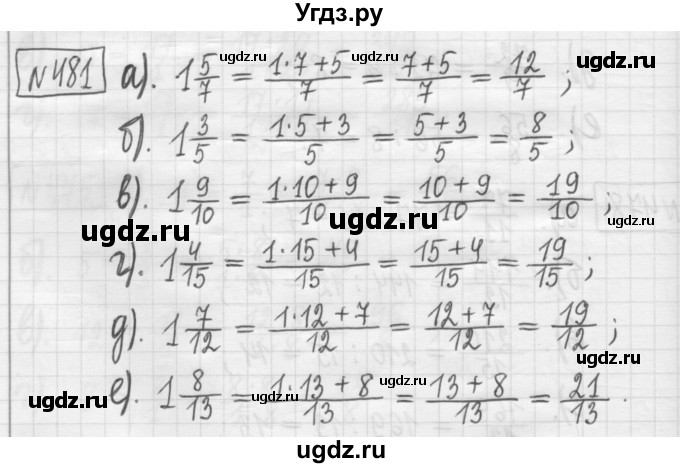 Угдз.ру
№481 а). 1 5/7 = (1·7+5)/7 = (7+5)/7 = 12/7 ;
б). 1 3/5 = (1·5+3)/5 = (5+3)/5 = 8/5 ;
в). 1 9/10 = (1·10+9)/10 = (10+9)/10 = 19/10 ;
г). 1 4/15 = (1·15+4)/15 = (15+4)/15 = 19/15 ;
д). 1 7/12 = (1·12+7)/12 = (12+7)/12 = 19/12 ;
е). 1 8/13 = (1·13+8)/13 = (13+8)/13 = 21/13 .
ugdz.ru
ugdz.ru
ugdz.ru
ugdz.ru
ugdz.ru
ugdz.ru
ugdz.ru
ugdz.ru
ugdz.ru
ugdz.ru
ugdz.ru
ugdz.ru
ugdz.ru